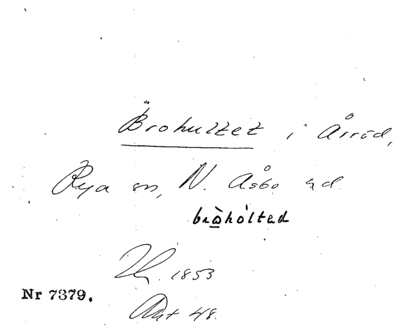 Brohultet i Årröd,
Rya sn, N. Åsbo hd
bròhòlted
1853
Nr 7379.
Ant 48.